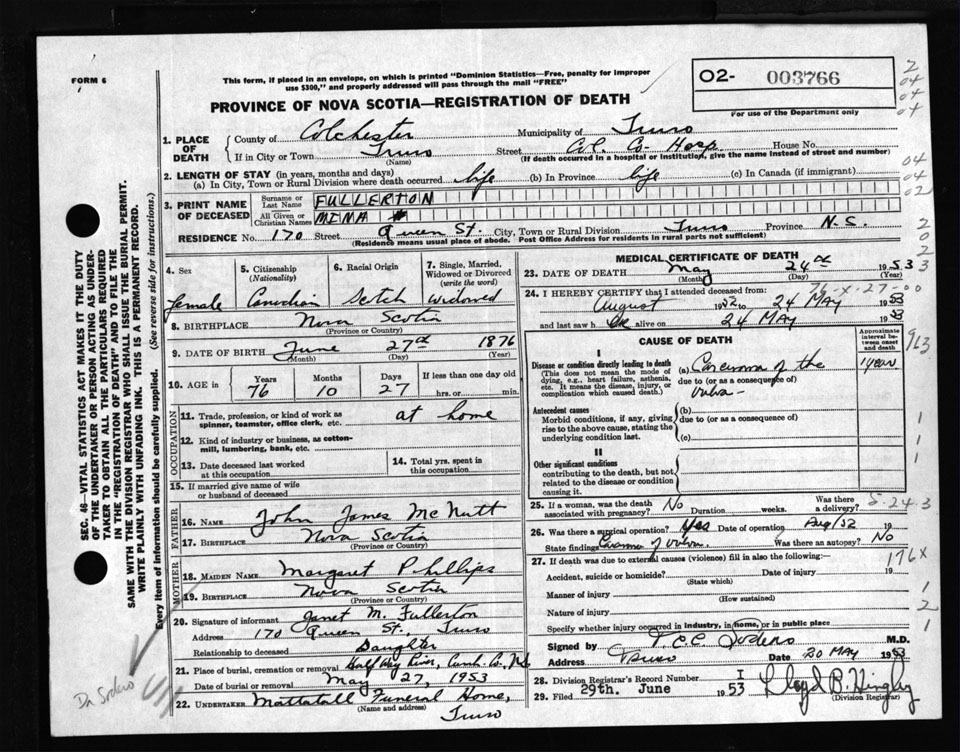 FORM 6
This form, if placed in an envelope, on which is printed "Dominion Statistics—Free, penalty for improper
use $300," and properly addressed will pass through the mail "FREE"
PROVINCE OF NOVA SCOTIA—REGISTRATION OF DEATH
O2- 003766
For use of the Department only
2
04
04
04
04
04
02
2
0
2
3
SEC. 46—VITAL STATISTICS ACT MAKES IT THE DUTY
OF THE UNDERTAKER OR PERSON ACTING AS UNDER-
TAKER TO OBTAIN ALL THE PARTICULARS REQUIRED
IN THE "REGISTRATION OF DEATH" AND TO FILE THE
SAME WITH THE DIVISION REGISTRAR WHO SHALL ISSUE THE BURIAL PERMIT.
WRITE PLAINLY WITH UNFADING INK. THIS IS A PERMANENT RECORD.
Every item of information should be carefully supplied. (See reverse side for instructions.)
1. PLACE OF DEATH
County of Colchester Municipality of Truro
If in City or Town Truro Street Col. Co. Hosp. House No.
(Name) (If death occurred in a hospital or institution, give the name instead of street and number)
2. LENGTH OF STAY (in years, months and days)
(a) In City, Town or Rural Division where death occurred life (b) In Province life (c) In Canada (if immigrant)
3. PRINT NAME OF DECEASED
Surname or Last Name FULLERTON
All Given or Christian Names MINA
RESIDENCE No. 170 Street Queen St. City, Town or Rural Division Truro Province N.S.
(Residence means usual place of abode. Post Office Address for residents in rural parts not sufficient)
4. Sex
female
5. Citizenship
(Nationality)
Canadian
6. Racial Origin
Scotch
7. Single, Married,
Widowed or Divorced
(write the word)
widowed
8. BIRTHPLACE Nova Scotia
(Province or Country)
9. DATE OF BIRTH June 27th 1876
(Month) (Day) (Year)
10. AGE in Years Months Days If less than one day old
76 10 27 hrs. or min.
OCCUPATION
11. Trade, profession, or kind of work as
spinner, teamster, office clerk, etc. at home
12. Kind of industry or business, as cotton-
mill, lumbering, bank, etc.
13. Date deceased last worked
at this occupation
14. Total yrs. spent in
this occupation
15. If married give name of wife
or husband of deceased
FATHER
16. NAME John James McNutt
17. BIRTHPLACE Nova Scotia
(Province or Country)
MOTHER
18. MAIDEN NAME Margaret Phillips
19. BIRTHPLACE Nova Scotia
(Province or Country)
20. Signature of informant Janet M. Fullerton
Address 170 Queen St. Truro
Relationship to deceased Daughter
21. Place of burial, cremation or removal Half Way River, Cumb. Co., N.S.
Date of burial or removal May 27, 1953
22. UNDERTAKER Mattatall Funeral Home,
(Name and address) Truro
MEDICAL CERTIFICATE OF DEATH
23. DATE OF DEATH May 24th 1953
(Month) (Day) (Year)
76-X-27-00
24. I HEREBY CERTIFY that I attended deceased from:
August 1952 to 24 May 1953
and last saw her alive on 24 MAY 1953
CAUSE OF DEATH
Approximate
interval be-
tween onset
and death
I
Disease or condition directly leading to death
(This does not mean the mode of
dying, e.g., heart failure, asthenia,
etc. It means the disease, injury, or
complication which caused death.)
(a) Carcinoma of the 1 year
due to (or as a consequence of)
vulva—
Antecedent causes
Morbid conditions, if any, giving
rise to the above cause, stating the
underlying condition last.
(b)
due to (or as a consequence of)
(c)
II
Other significant conditions
contributing to the death, but not
related to the disease or condition
causing it.
963
1
1
1
25. If a woman, was the death
associated with pregnancy? No Duration weeks. Was there
a delivery?
5-24-3
26. Was there a surgical operation? Yes Date of operation Aug/52 19
State findings of vulva. Was there an autopsy? No
27. If death was due to external causes (violence) fill in also the following:—
176X
Accident, suicide or homicide? Date of injury 19
(State which)
Manner of injury
(How sustained)
Nature of injury
Specify whether injury occurred in industry, in home, or in public place
1
2
1
Signed by T.C.C. Sodero M.D.
Address Truro Date 20 MAY 1953
28. Division Registrar's Record Number I
29. Filed 29th. June 1953 Lloyd B. Hingley
(Division Registrar)
Dr Sodero